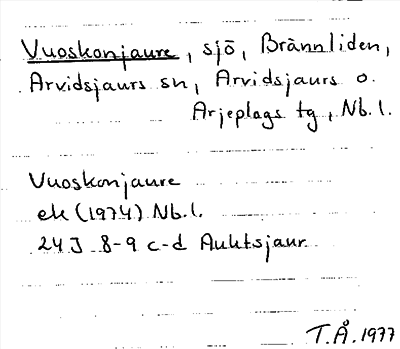 Vuoskonjaure, sjö, Brännliden,
Arvidsjaurs sn, Arvidsjaurs o.
Arjeplogs tg, Nb. l.
Vuoskonjaure
ek (1974) Nb.l.
24J 8-9 c-d Auktsjaur
T.Å. 1977